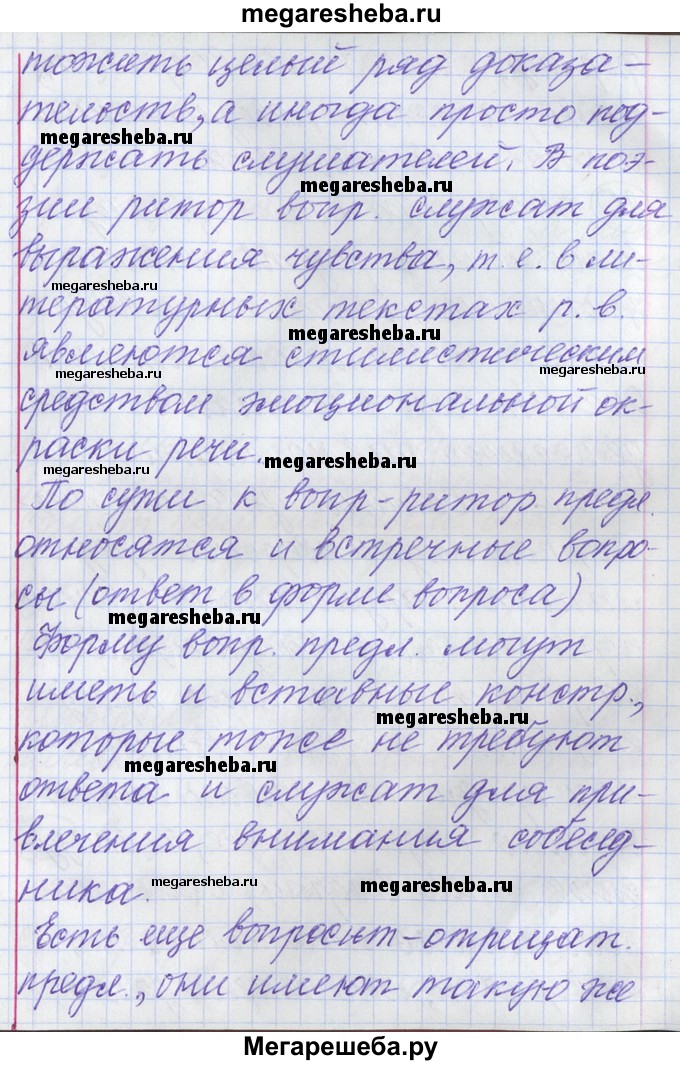 megaresheba.ru
тожить целый ряд доказа-
тельств, а иногда просто под-
megaresheba.ru
держать слушателей. В поэ-
megaresheba.ru
зии ритор вопр. служат для
выражения чувства, т. е. в ли-
megaresheba.ru
тературных текстах р. в.
megaresheba.ru
являются стилистическим
megaresheba.ru megaresheba.ru
средством эмоциональной ок-
раски речи.
megaresheba.ru megaresheba.ru
По сути к вопр-ритор предл.
относятся и встречные вопро-
сы (ответ в форме вопроса)
megaresheba.ru
Форму вопр. предл. могут
иметь и вставные констр.,
megaresheba.ru
которые тоже не требуют
megaresheba.ru
ответа и служат для при-
влечения внимания собесед-
ника.
megaresheba.ru megaresheba.ru
Есть еще -отрицат.
предл., они имеют такую же
Мегарешеба.ру